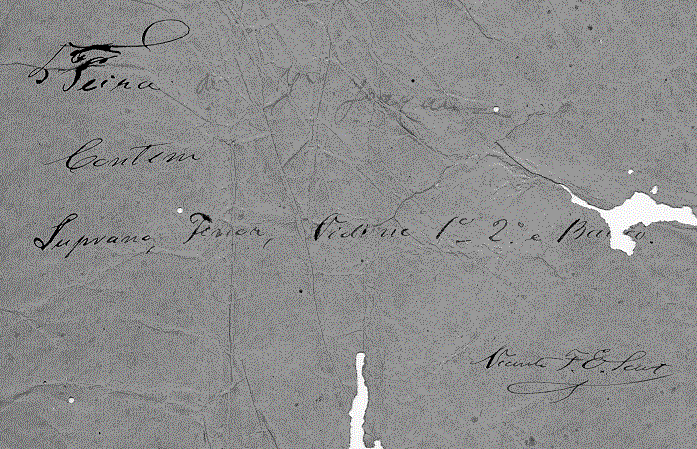 Feira
Contem
Suprano, Tenor, Violino 1º 2.º e Baixo.
Vicente F. E.